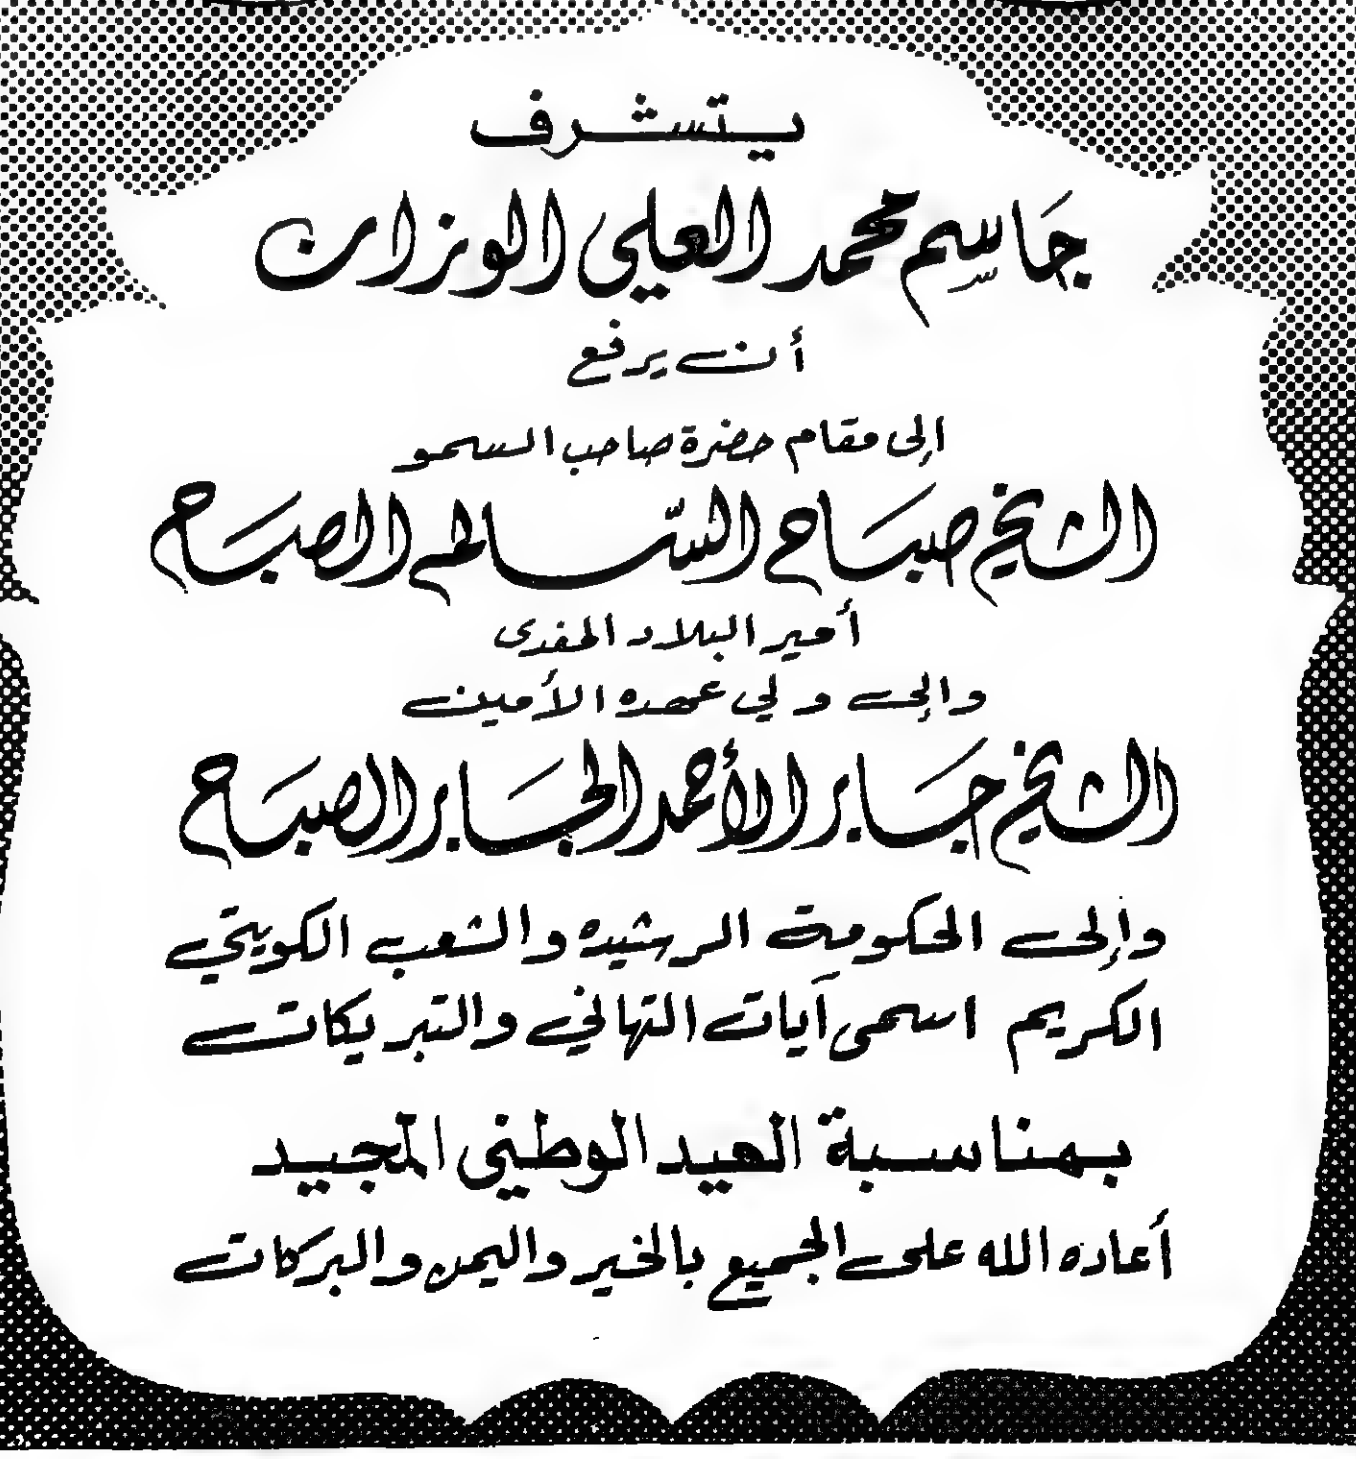 يتشرف
جاسم محمد العلي الوزان
أن يرفع
إلى مقام حضرة صاحب السمو
الشيخ صباح السّالم الصباح
أمير البلاد المفدى
وإلى ولي عهده الأمين
الشيخ جابر الأحمد الجابر الصباح
وإلى الحكومة الرشيده والشعب الكويتي
الكريم اسمى آيات التهاني والتبريكات
بمناسبة العيد الوطني المجيد
أعاده الله على الجميع بالخير واليمن والبركات